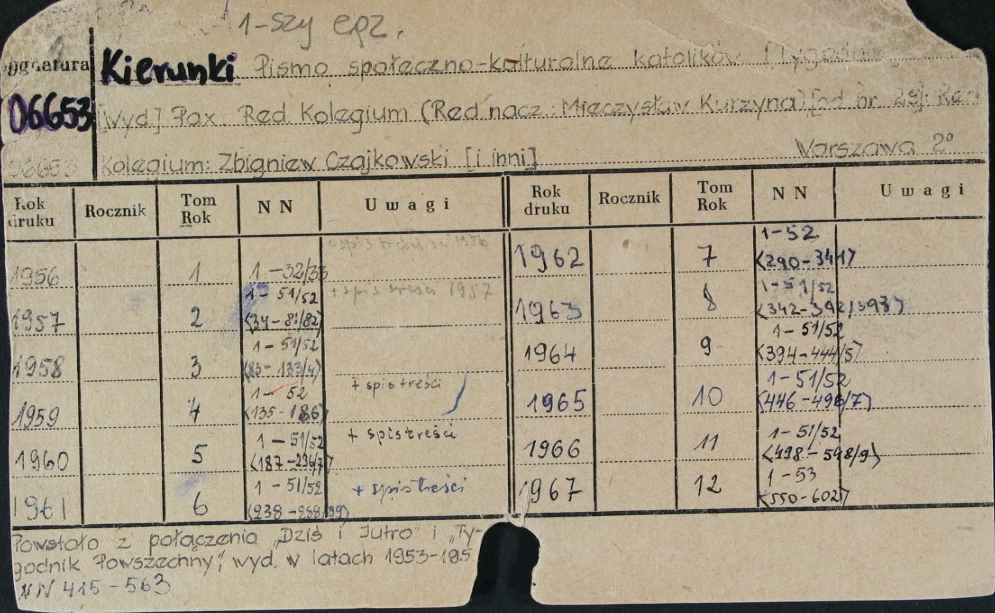 1-szy egz.
Sygnatura Kierunki Pismo społeczno-kulturalne katolików
06653 [wyd.] Pax. Red Kolegium (Red nacz: Mieczysław Kurzyna) [od nr 29]: Red
06653 Kolegium: Zbigniew Czajkowski [i inni] Warszawa 2°
Rok druku Rocznik Tom Rok NN Uwagi Rok druku Rocznik Tom Rok NN Uwagi
1956 1 1-32/33
1957 2 1-51/52 <34-81/82> + spis treści 1957
1958 3 1-51/52 <83-133/4>
1959 4 1-52 <135-186> + spis treści
1960 5 1-51/52 + spis treści
1961 6 1-51/52 + spis treści
1962 7 1-52 <290-341>
1963 8 1-51/52 <342-392/393>
1964 9 1-51/52 <394-444/5>
1965 10 1-51/52 <446-496/7>
1966 11 1-51/52 <498-548/9>
1967 12 1-53 <550-602>
Powstało z połączenia „Dziś i Jutro" i „Ty-
godnik Powszechny", wyd. w latach 1953-195
NN 415-563